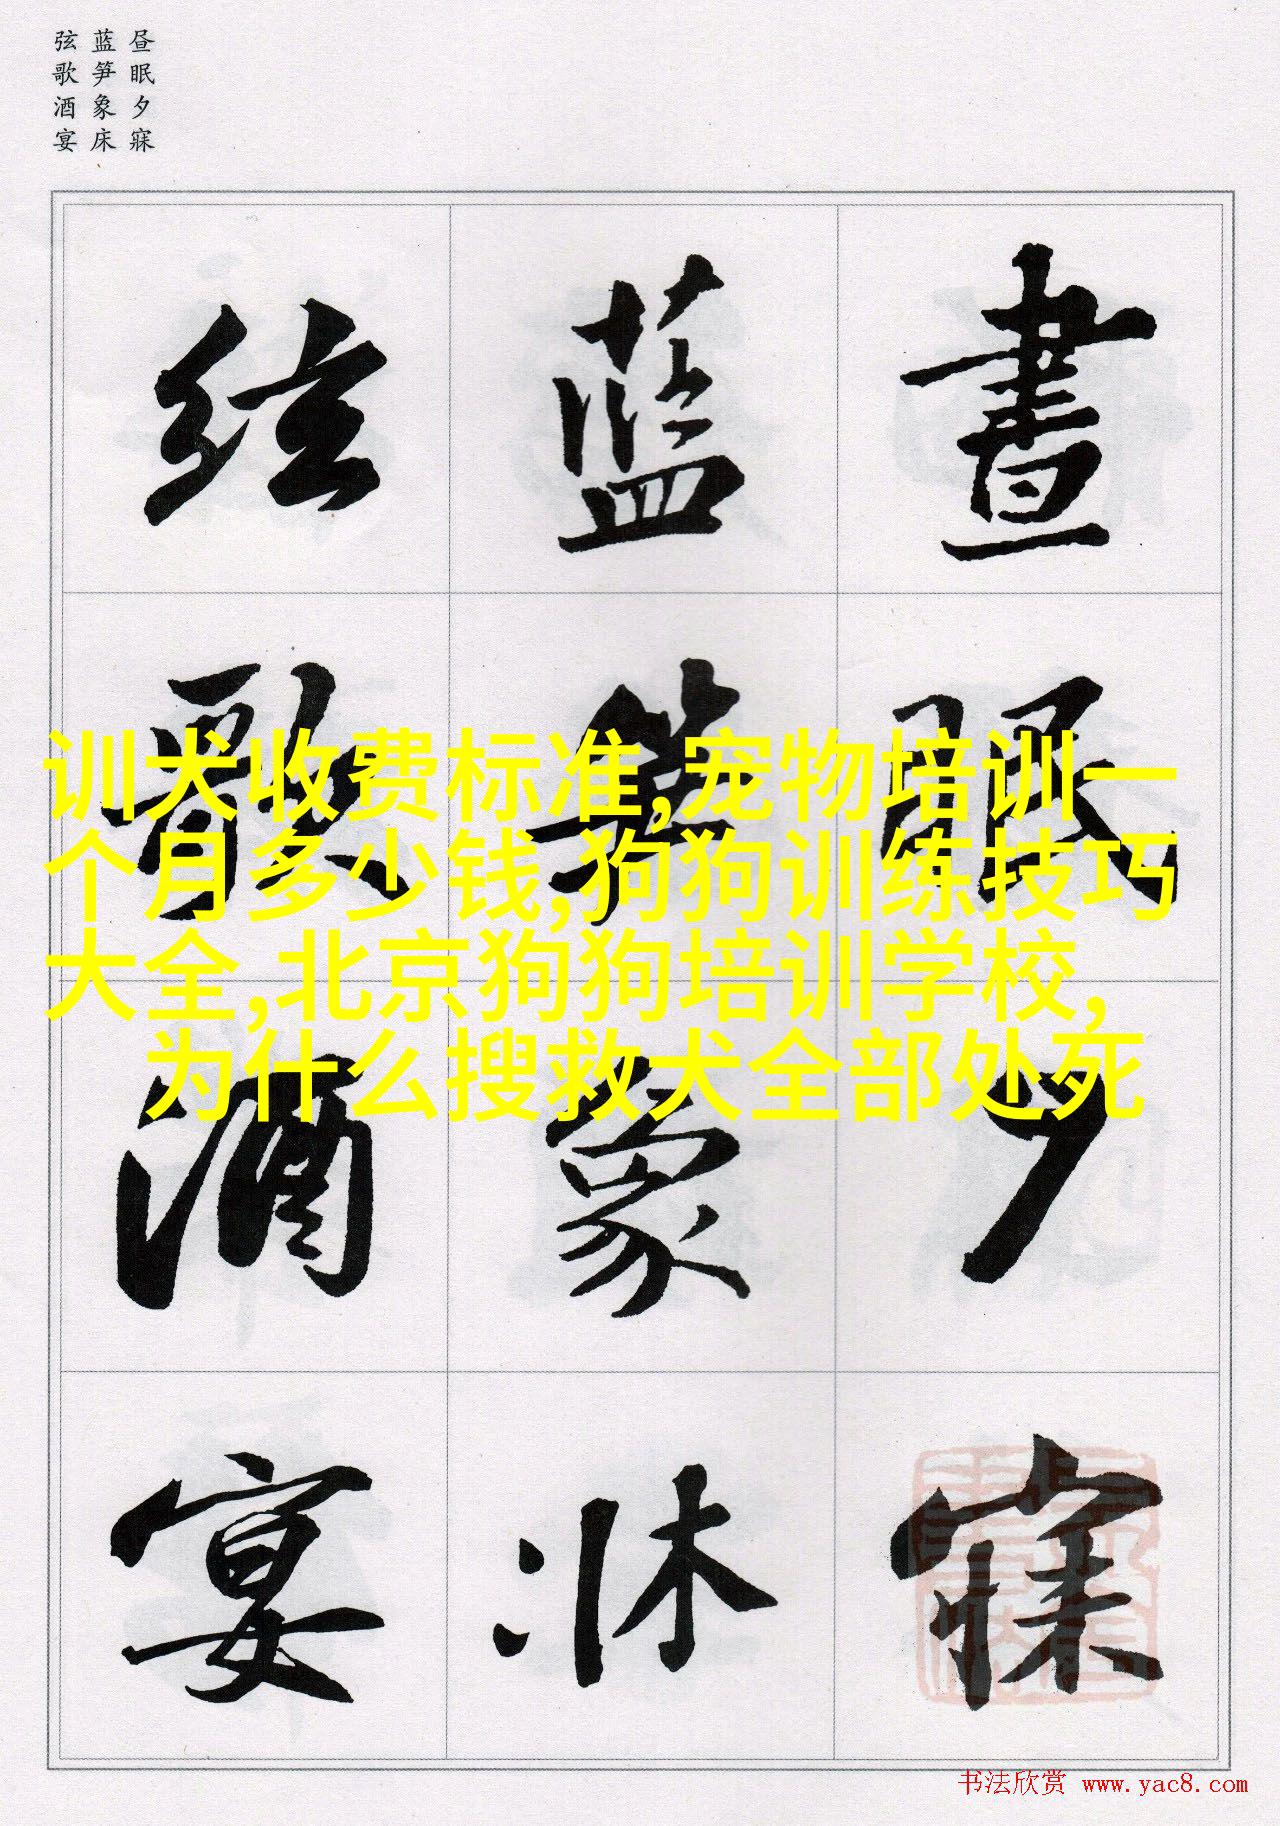 昼眠夕寐
蓝笋象床
弦歌酒宴
晝眠夕寐
藍笋象床
弦歌酒宴
训犬收费标准,宠物培训一
个月多少钱,狗狗训练技巧
大全,北京狗狗培训学校,
为什么搜救犬全部处死
书法欣赏 www.yac8.com